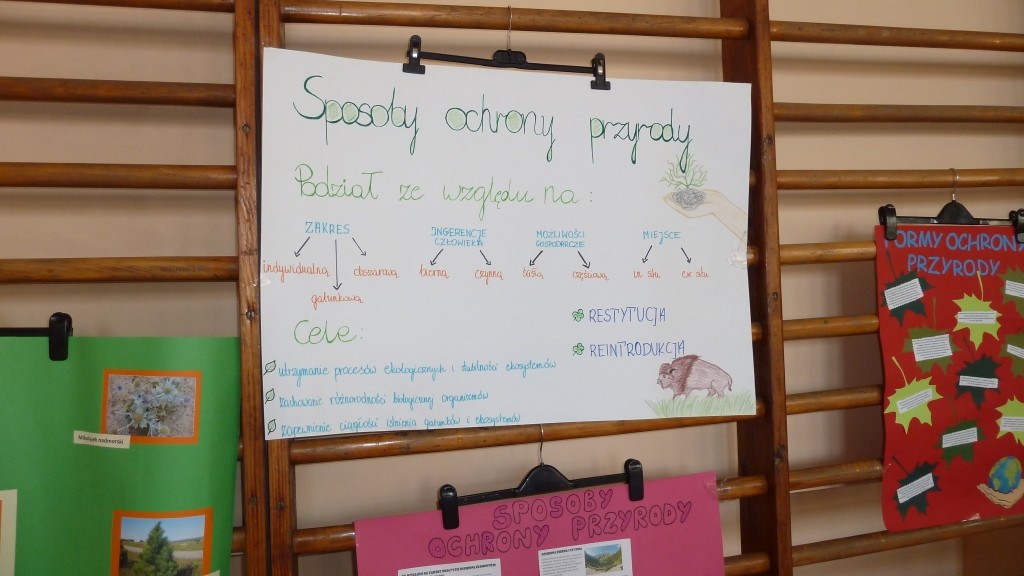 Sposoby ochrony przyrody
Podział ze względu na:
ZAKRES
indywidualną
gatunkową
obszarową
INGERENCJE
CZŁOWIEKA
bierną
czynną
MOŻLIWOŚCI
GOSPODARCZE
ścisłą
częściową
MIEJSCE
in situ
ex situ
RESTYTUCJA
REINTRODUKCJA
Cele:
utrzymanie procesów ekologicznych i stabilności ekosystemów
zachowanie różnorodności biologicznej organizmów
zapewnienie ciągłości istnienia gatunków i ekosystemów
Mikołajek nadmorski
SPOSOBY
OCHRONY PRZYRODY
ORMY OCHRON
PRZYRODY